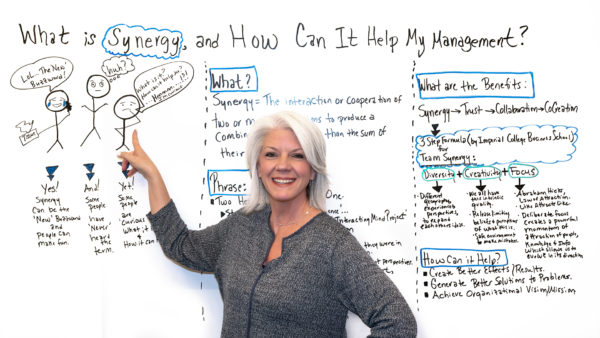 What is Synergy, and How Can It Help My Management?
LoL... The "New"
Buzzword!
huh?
What is it?
Team
Yes!
Synergy
Can be the
"New" Buzzword
and
People can
make fun.
And!
Some
people
have
Never
heard
the
term.
Yet!
Some
people
are
Curious
What it
How it can
What?
Synergy = The interaction or cooperation of
two or
to produce a
Combin
than the sum of
their
Phrase:
Two He
One.
InteractingMindProject
they were in
t perspectives.
What are the Benefits:
Synergy → Trust → Collaboration → CoCreation
3 Step formula (by Imperial College Business School)
for
Team Synergy:
Diversity + Creativity + Focus
Different
geography,
experiences
perspectives,
to expand
each others idea.
We all have
this intrinsic
quality.
Release limiting
beliefs +
of what this is.
Safe environment
to make mistakes.
Abraham Hicks,
Law of Attraction.
Like attract Like.
Deliberate focus
creates a powerful
momentum of
attraction of people,
Knowledge + Info
which allows us to
evolve in its direction
How Can it Help?
Create Better Effects/Results.
Generate Better Solutions to Problems.
Achieve Organizational Vision/Mission